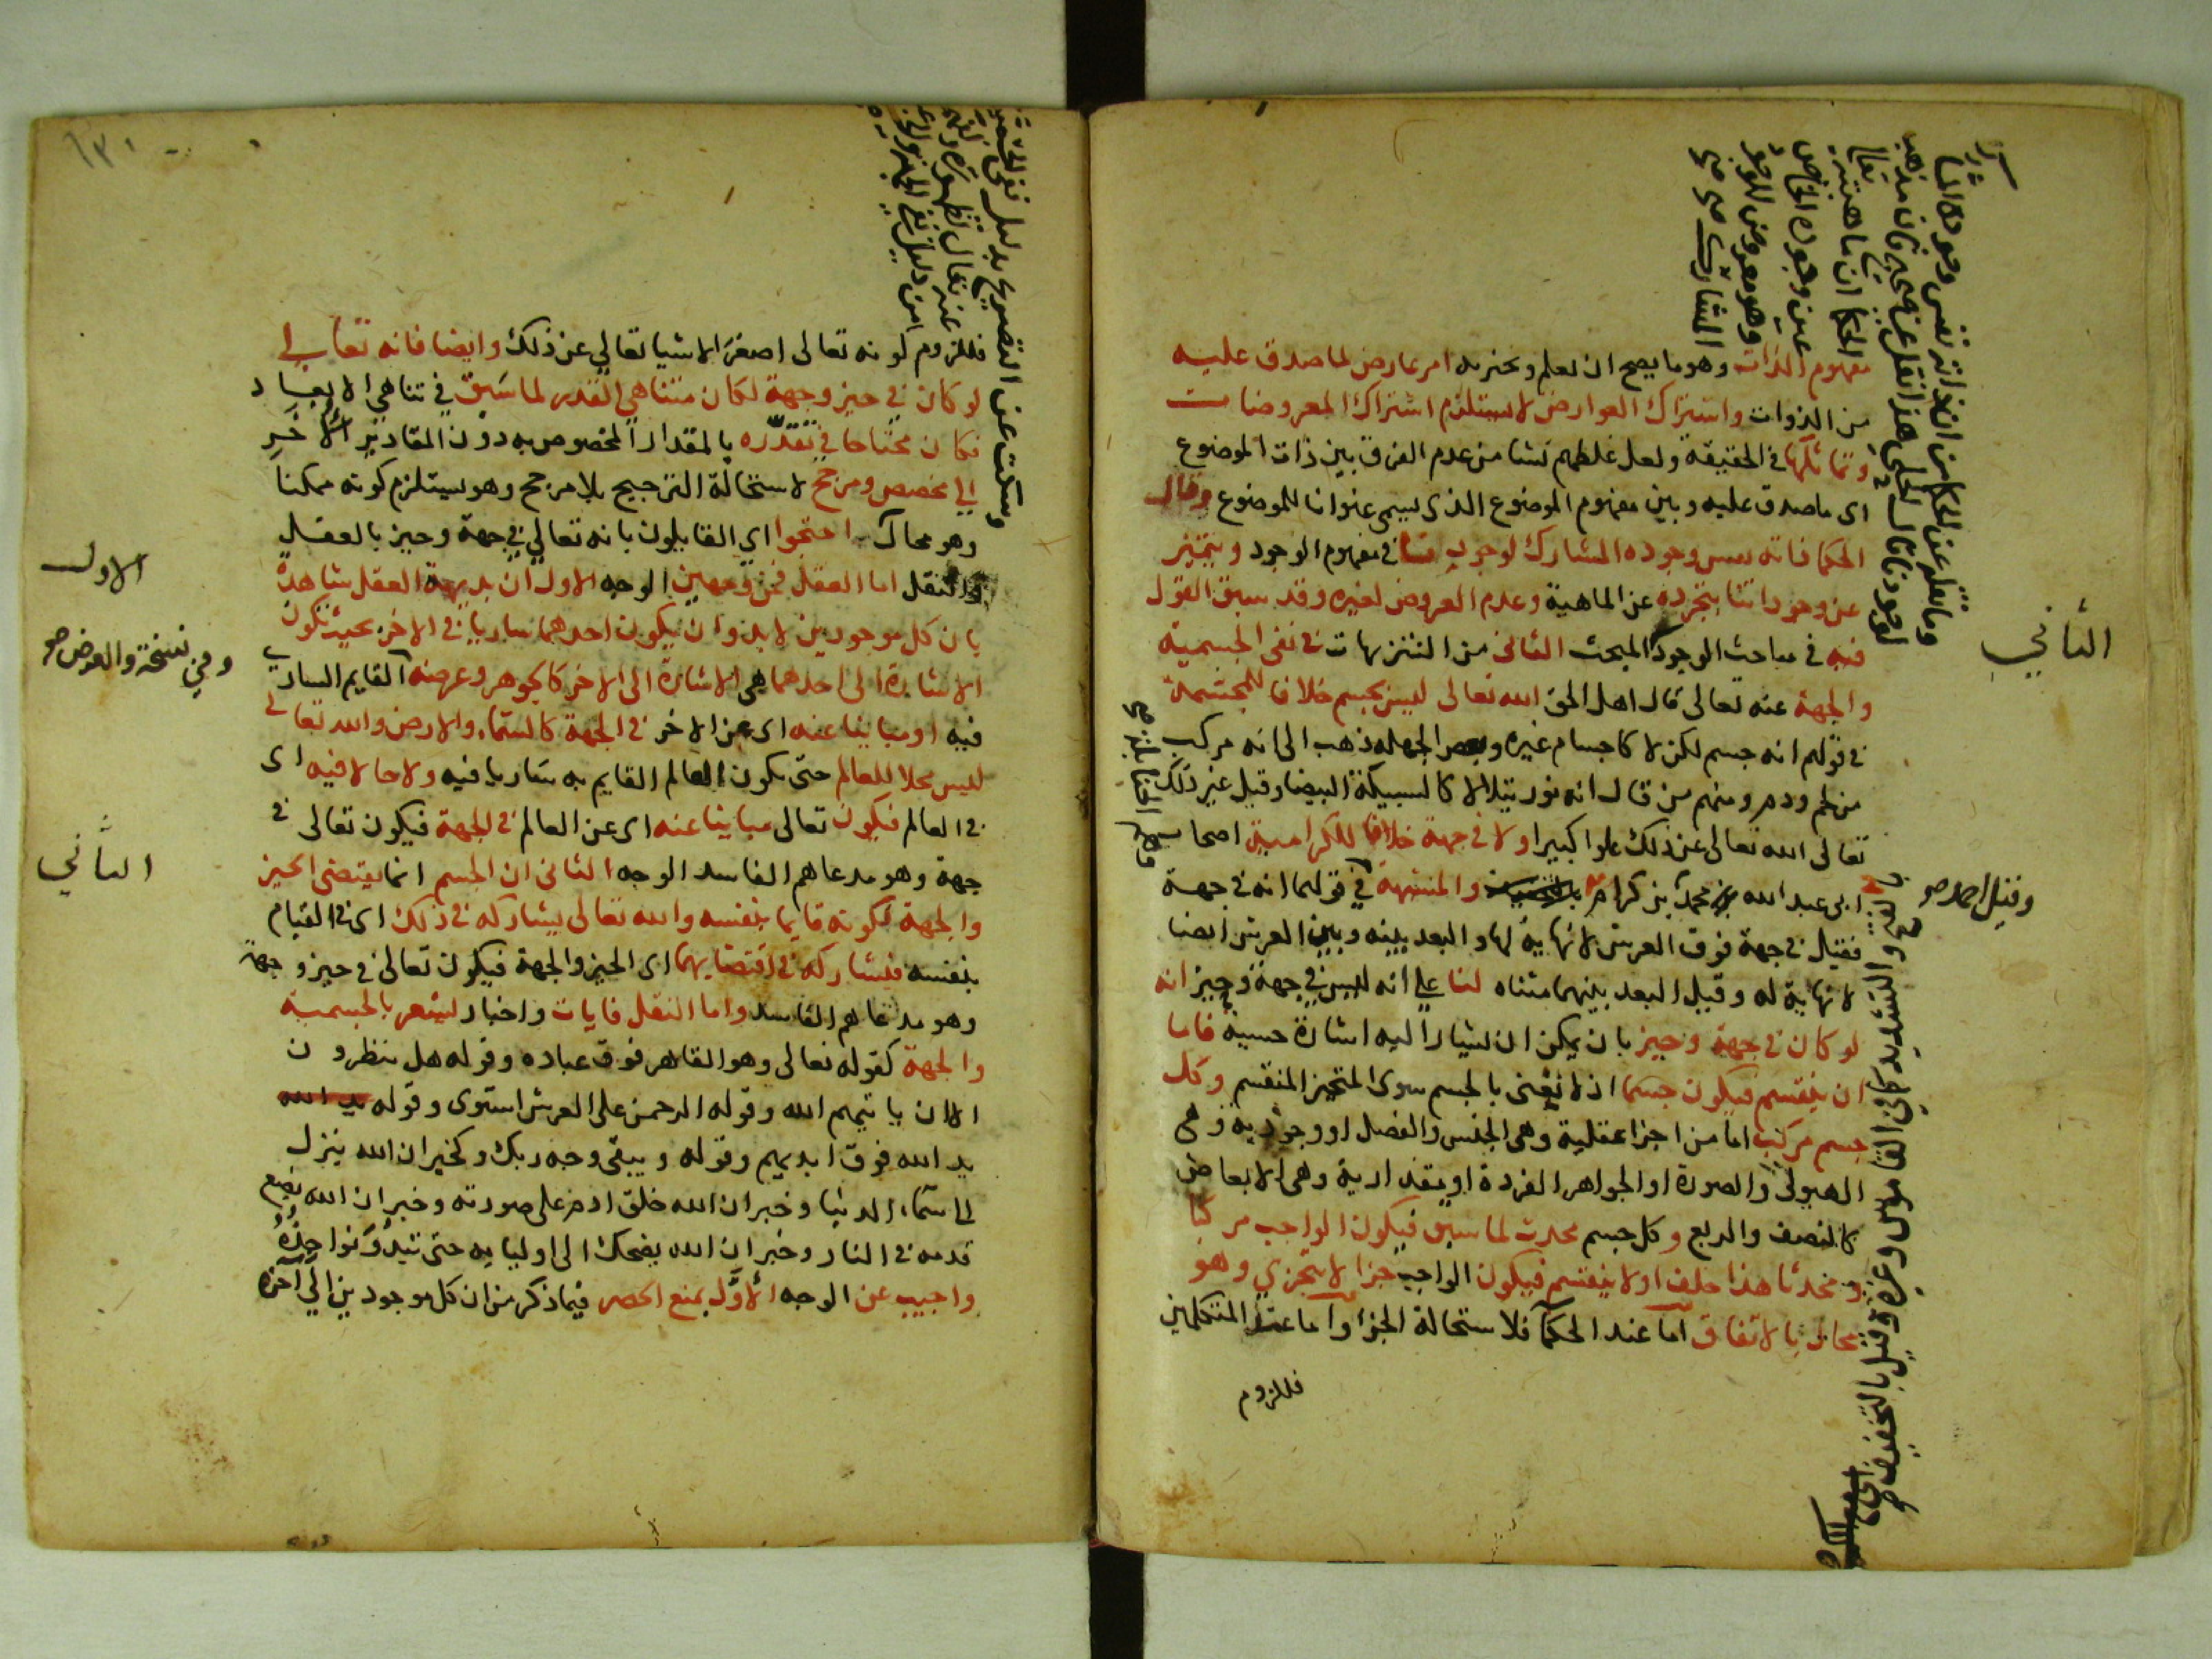 مفهوم الذات وهو ما يصح ان يعلم ويخبر به امر عارض لما صدق عليه
من الذوات واشتراك العوارض لا يستلزم اشتراك المعروضات
وتماثلها في الحقيقة ولعل غلطهم نشا من عدم الفرق بين ذات الموضوع
اى ما صدق عليه وبين مفهوم الموضوع الذى يسمى عنوانا للموضوع وقال
الحكما ذاته نفس وجوده المشارك لوجودنا في مفهوم الوجود ويتميز
عن وجوداتنا بتجرده عن الماهية وعدم العروض لغيره وقد سبق القول
فيه في مباحث الوجود المبحث الثانى من التنزيهات في نفى الجسمية
والجهة عنه تعالى قال اهل الحق الله تعالى ليس بجسم خلافا للمجسمة
في قولهم انه جسم لكن لا كاجسام غيره وبعض الجهلة ذهب الى انه مركب
من لحم ودم ومنهم من قال انه نور يتلالا كالسبيكة البيضا وقيل غير ذلك
تعالى الله تعالى عن ذلك علوا كبيرا ولا في جهة خلافا للكرامية اصحاب
ابى عبد الله محمد بن كرام والمشبهة في قولهما انه في جهة
فقيل في جهة فوق العرش لا نهاية لها والبعد بينه وبين العرش ايضا
لا نهاية له وقيل البعد بينهما متناه لنا على انه ليس في جهة وحيز انه
لو كان في جهة وحيز بان يمكن ان يشار اليه اشارة حسية فاما
ان ينقسم فيكون جسما اذ لا نعنى بالجسم سوى المتحيز المنقسم وكل
جسم مركب اما من اجزا عقلية وهى الجنس والفصل او وجودية وهى
الهيولى والصورة او الجواهر الفردة او مقدارية وهى الابعاض
كالنصف والربع وكل جسم محدث لما سبق فيكون الواجب مركبا
ومحدثا هذا خلف او لا ينقسم فيكون الواجب جزا لا يتجزي وهو
محال بالاتفاق اما عند الحكما فلاستحالة الجزا واما عند المتكلمين
فللزوم
الثاني
وقيل احمد صح
فللزوم كونه تعالى اصغر الاشيا تعالي عن ذلك وايضا فانه تعالي
لو كان في حيز وجهة لكان متناهي القدر لما سبق في تناهي الابعاد
فكان محتاجا في تقدره بالمقدار المخصوص به دون المقادير الاخر
الي مخصص ومرجح لاستحالة الترجيح بلا مرجح وهو يستلزم كونه ممكنا
وهو محال احتجوا اي القايلون بانه تعالي في جهة وحيز بالعقل
والنقل اما العقل فمن وجهين الوجه الاول ان بديهة العقل شاهدة
بان كل موجودين لا بد وان يكون احدهما ساريا في الاخر بحيث تكون
الاشارة الى احدهما هي الاشارة الى الاخر كالجوهر وعرضه القايم السارى
فيه او مباينا عنه اى عن الاخر في الجهة كالسماء والارض والله تعالى
ليس محلا للعالم حتى يكون العالم القايم به ساريا فيه ولا حالا فيه اى
في العالم فيكون تعالى مباينا عنه اى عن العالم في الجهة فيكون تعالى في
جهة وهو مدعاهم الفاسد الوجه الثانى ان الجسم انما يقتضى الحيز
والجهة لكونه قايما بنفسه والله تعالى يشاركه في ذلك اى في القيام
بنفسه فيشاركه في اقتضايهما اى الحيز والجهة فيكون تعالى في حيز وجهة
وهو مدعاهم الفاسد واما النقل فايات واخبار تشعر بالجسمية
والجهة كقوله تعالى وهو القاهر فوق عباده وقوله هل ينظرون
الا ان ياتيهم الله وقوله الرحمن على العرش استوى وقوله يد الله
يد الله فوق ايديهم وقوله ويبقى وجه ربك وكخبر ان الله ينزل
الى سماء الدنيا وخبر ان الله خلق ادم على صورته وخبر ان الله يضع
قدمه في النار وخبر ان الله يضحك الى اوليايه حتى تبدو نواجذه
واجيب عن الوجه الأول بمنع الحصر فيما ذكر من ان كل موجودين الي آخره
الاول
وفي نسخة والعرض صح
الثاني